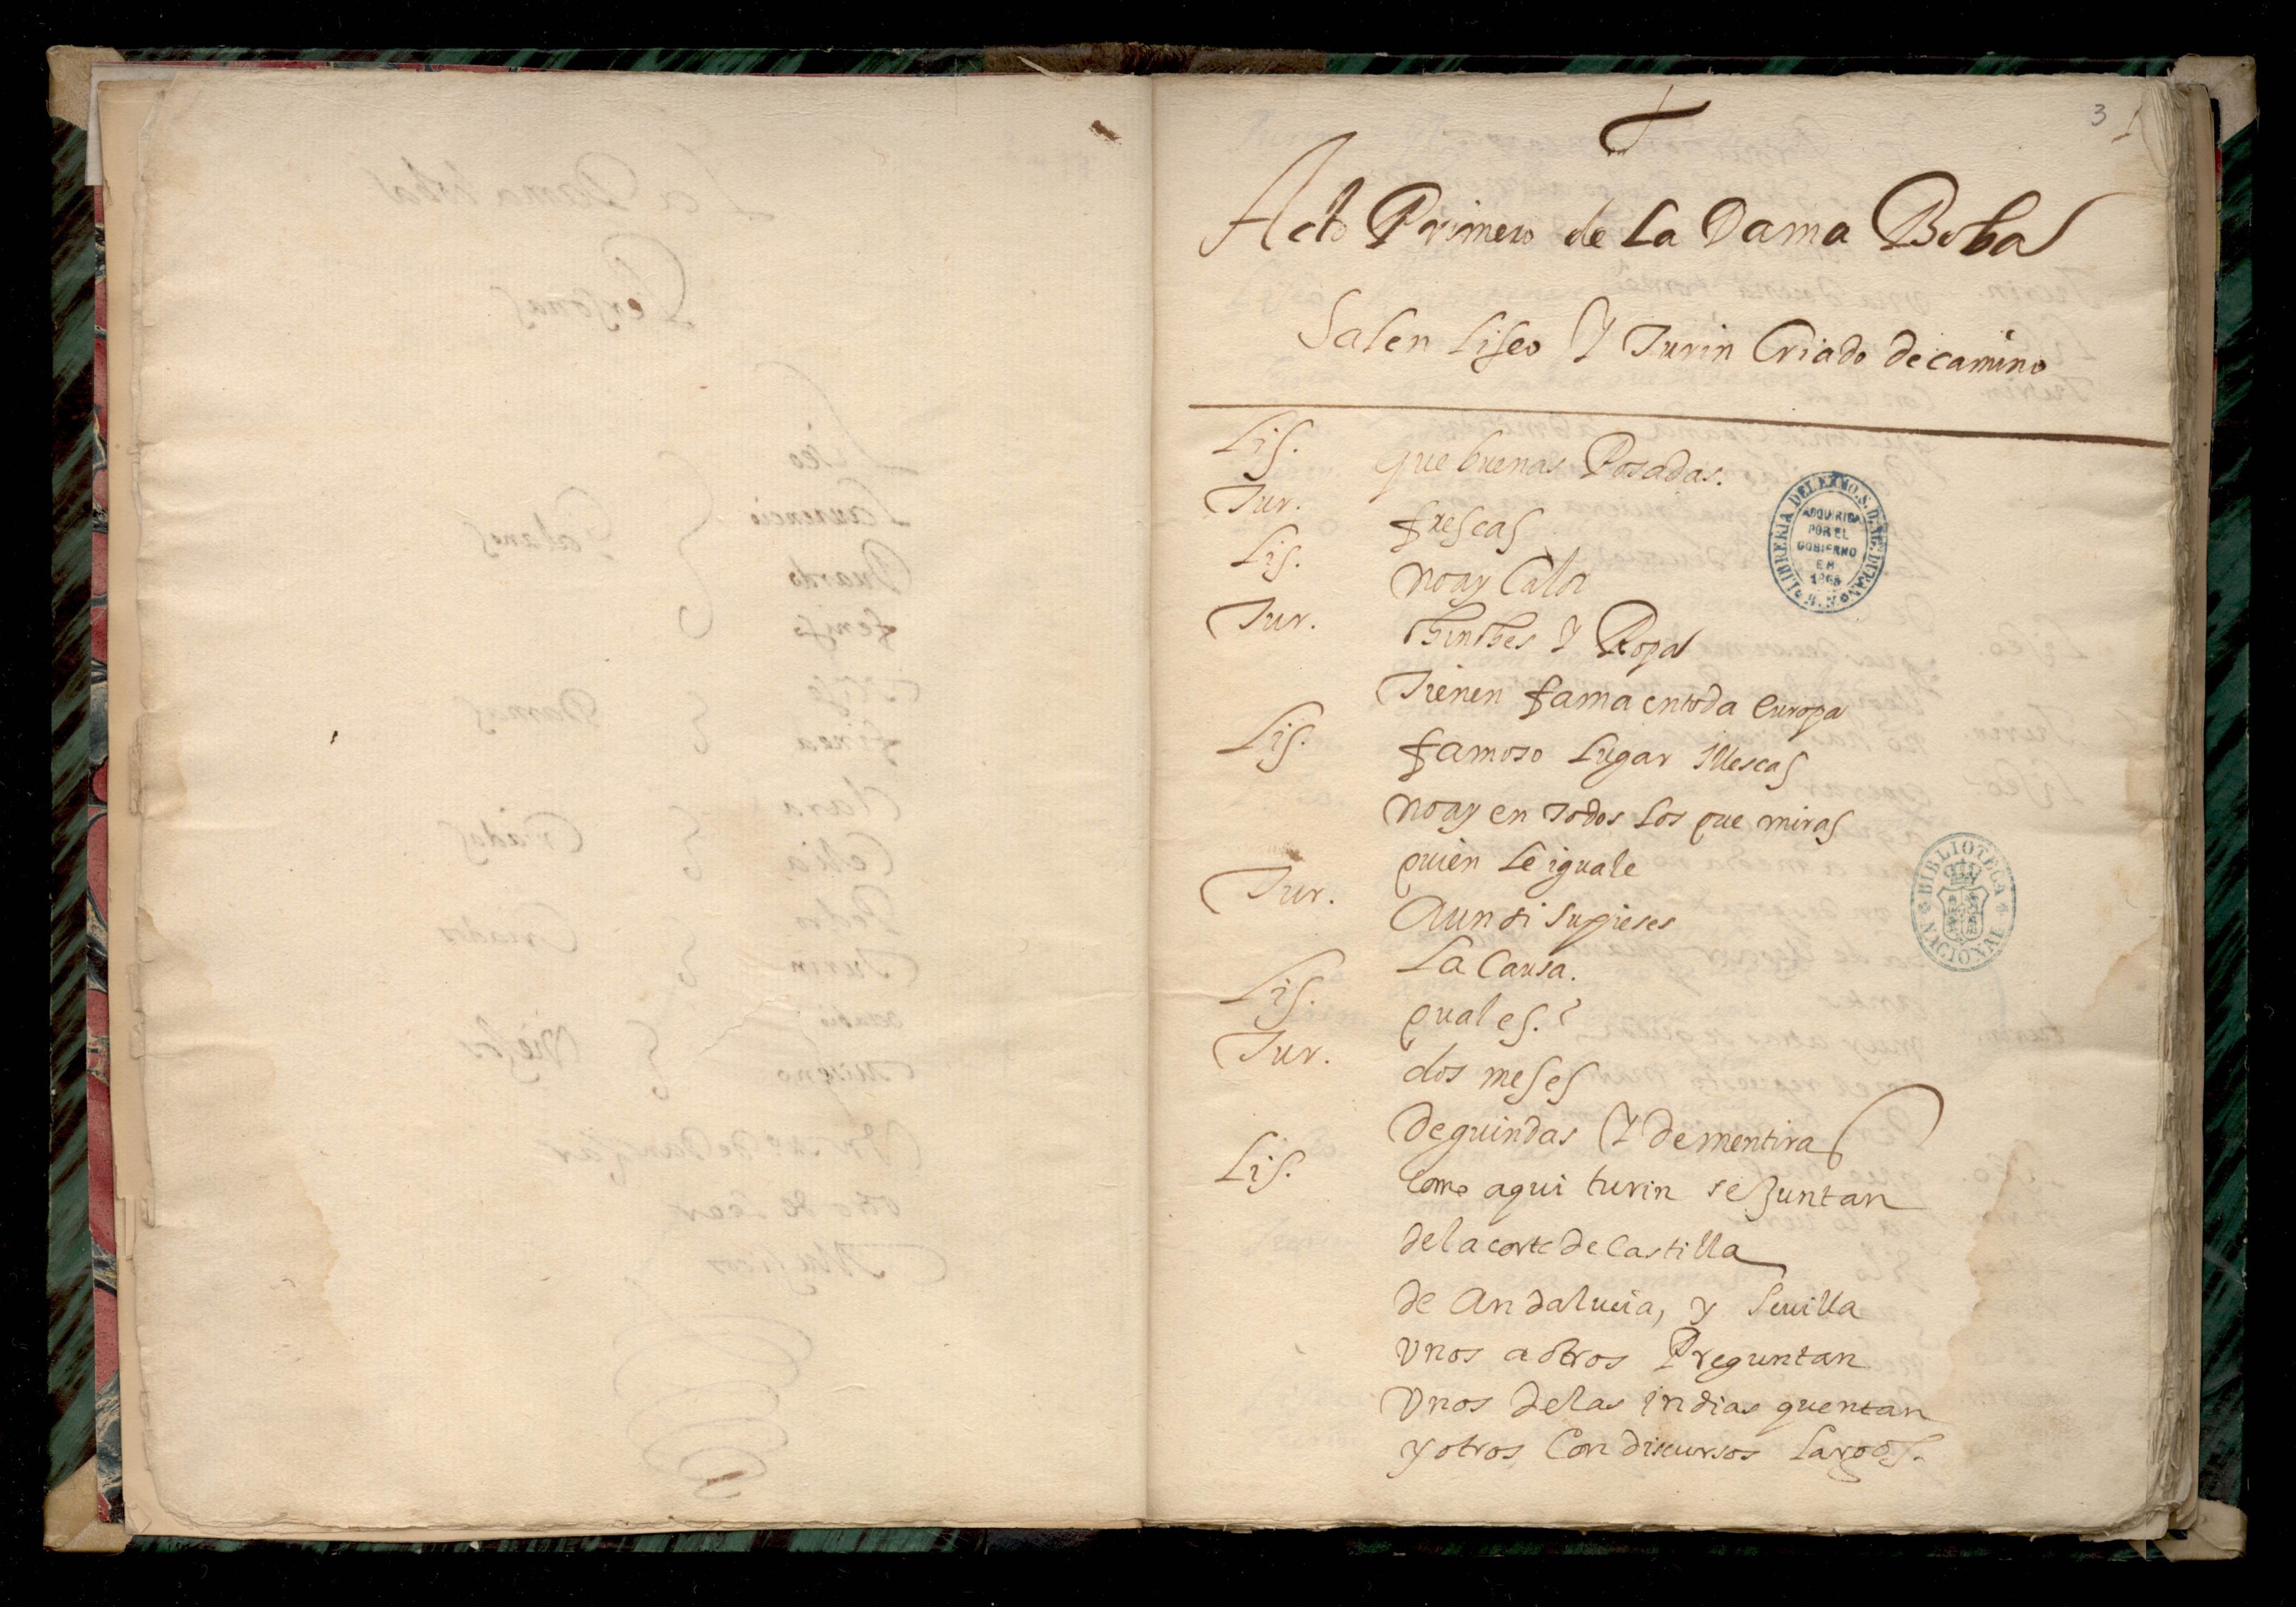 3 1
Acto Primero de La Dama Boba
Salen Liseo Y Turin Criado de camino
Lis. que buenas Posadas.
Tur. frescas
Lis. no ay Calor
Tur. chinches Y Ropa
Tienen fama en toda Europa
Lis. famoso Lugar Illescas
no ay en todos Los que miras
quien Le iguale
Tur. Aun si supieses
La Causa.
Lis. qual es.?
Tur. dos meses
de guindas Y de mentiras
Lis. Como aqui turin se Juntan
de la corte de Castilla
de Andaluçia, y Seuilla
Vnos a otros Preguntan
Vnos de las indias quentan
y otros Con discursos Largos.
LIBRERIA DEL EXMO. S. D. AG. DURAN
ADQUIRIDA
POR EL
GOBIERNO
EN
1863
B. N.
BIBLIOTECA
NACIONAL